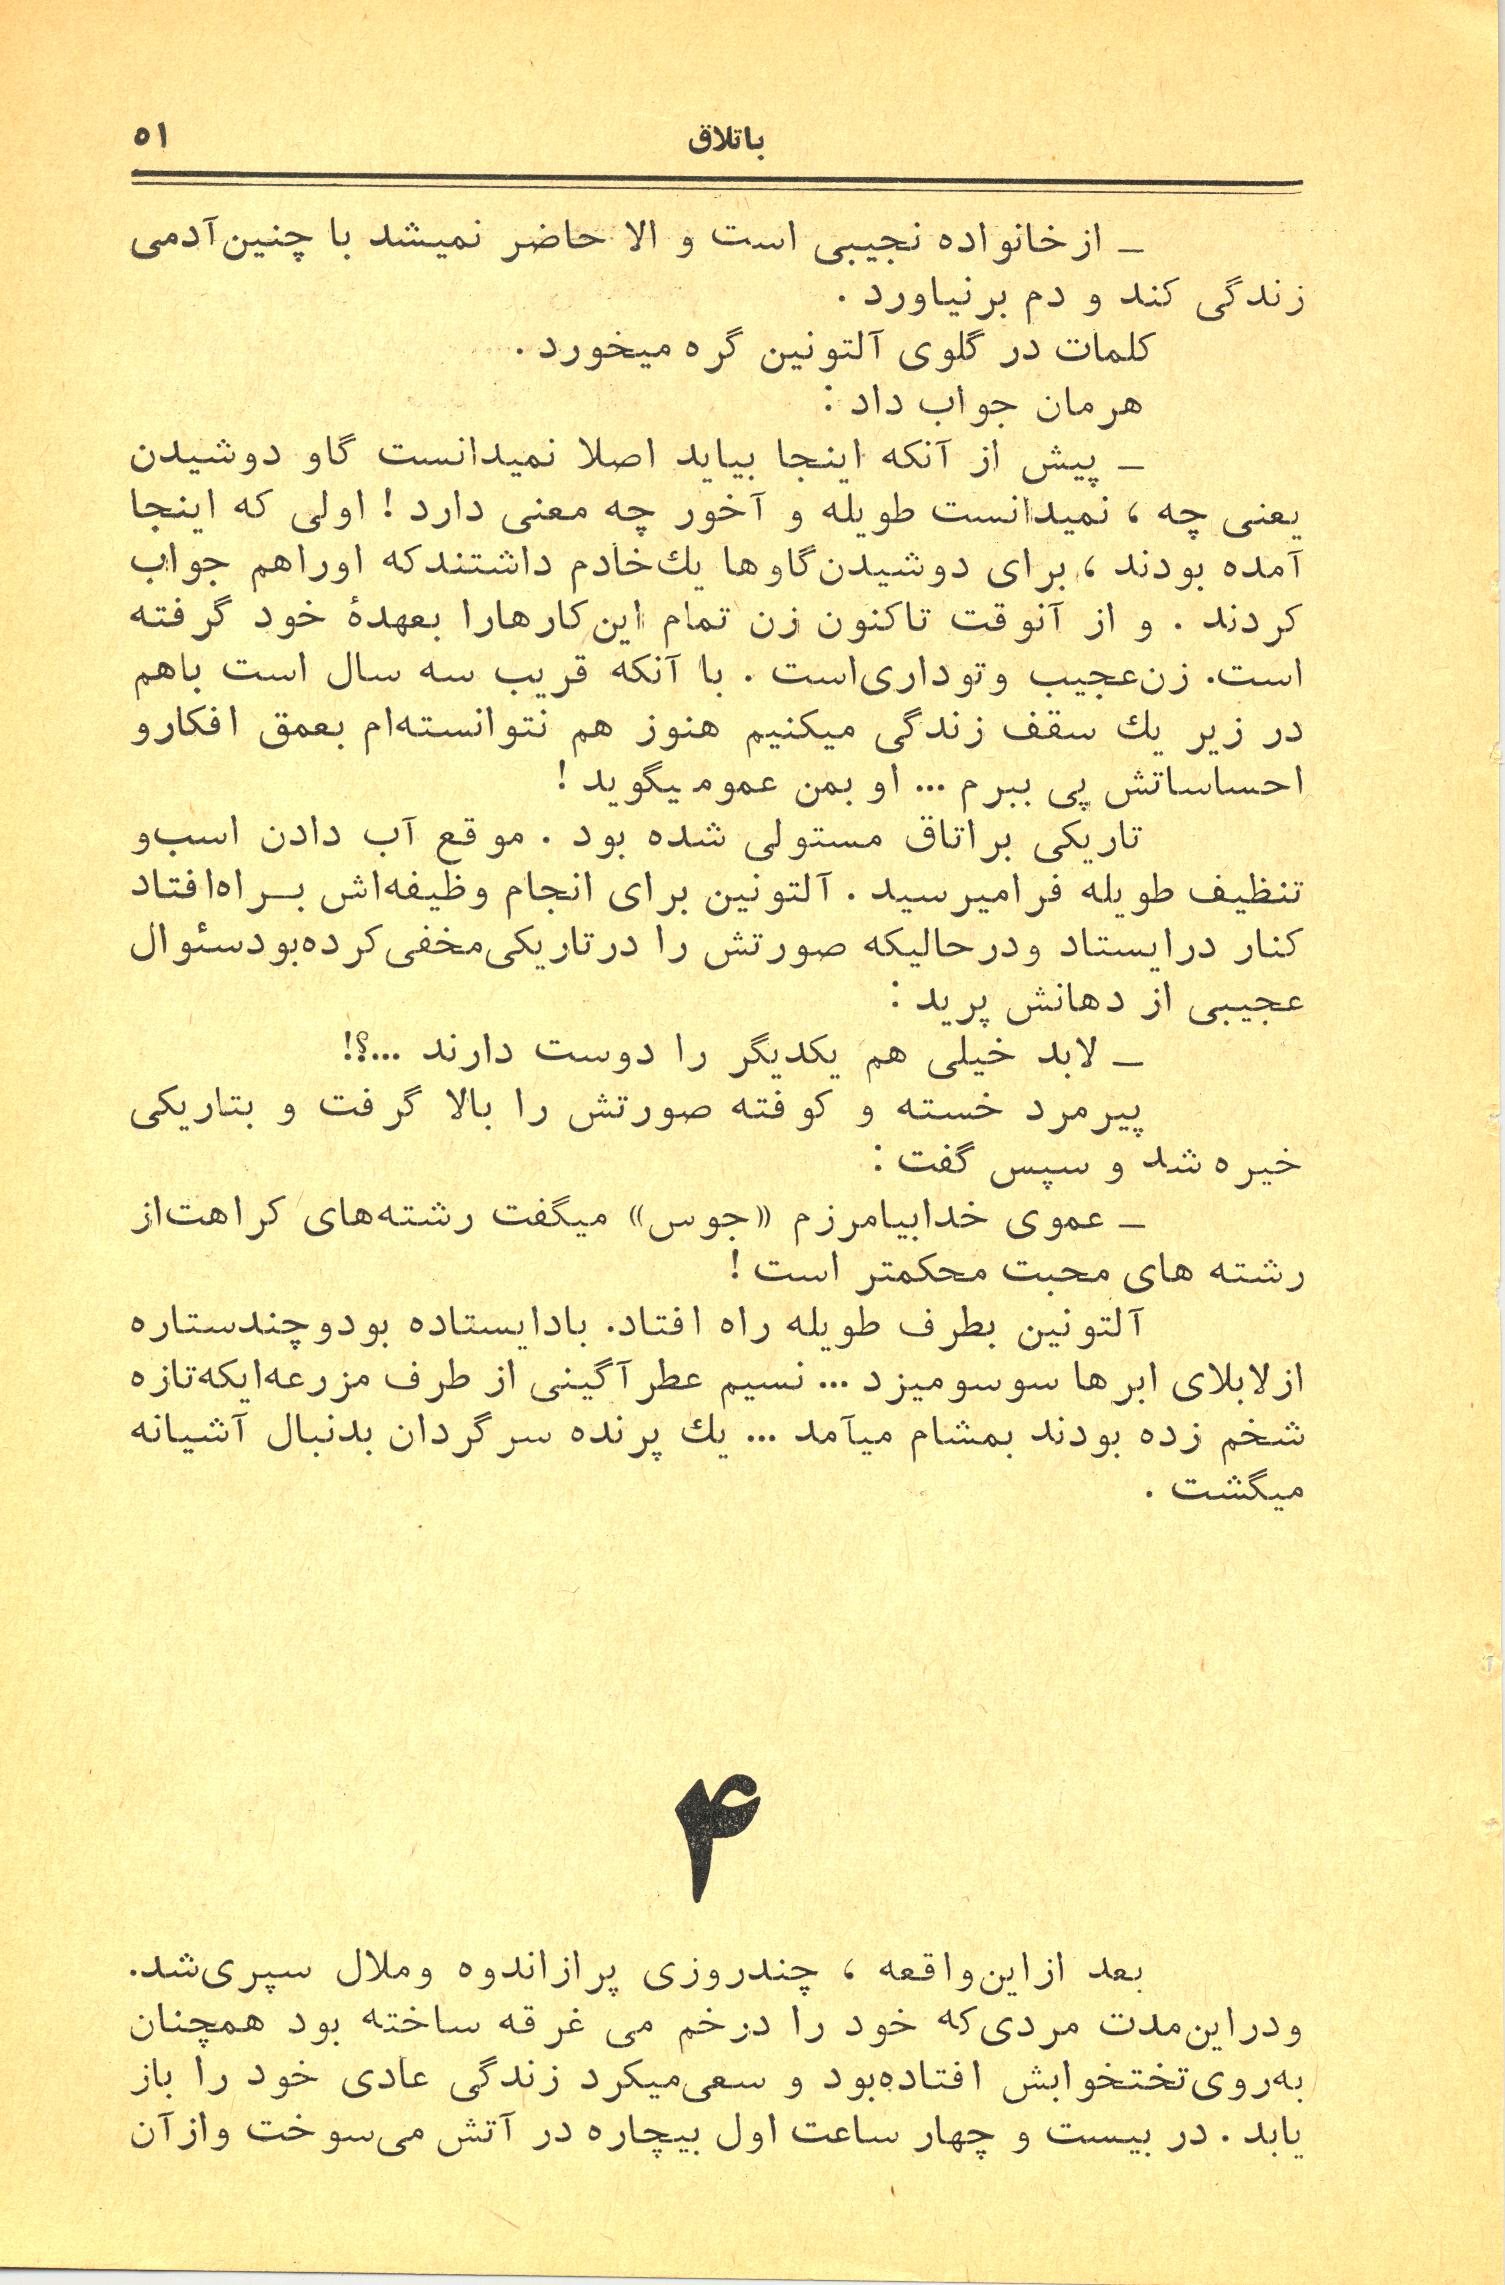 باتلاق ۵۱
ـ از خانواده نجیبی است و الا حاضر نمیشد با چنین آدمی
زندگی کند و دم برنیاورد .
کلمات در گلوی آلتونین گره میخورد .
هرمان جواب داد :
ـ پیش از آنکه اینجا بیاید اصلا نمیدانست گاو دوشیدن
یعنی چه ، نمیدانست طویله و آخور چه معنی دارد ! اولی که اینجا
آمده بودند ، برای دوشیدن گاوها یك خادم داشتند که اوراهم جواب
کردند . و از آنوقت تاکنون زن تمام این کارهارا بعهدهٔ خود گرفته
است. زن عجیب وتوداری است . با آنکه قریب سه سال است باهم
در زیر یك سقف زندگی میکنیم هنوز هم نتوانسته‌ام بعمق افکارو
احساساتش پی ببرم ... او بمن عمو میگوید !
تاریکی بر اتاق مستولی شده بود . موقع آب دادن اسب و
تنظیف طویله فرامیرسید . آلتونین برای انجام وظیفه‌اش بـراه افتاد
کنار در ایستاد ودرحالیکه صورتش را درتاریکی مخفی کرده بود سئوال
عجیبی از دهانش پرید :
ـ لابد خیلی هم یکدیگر را دوست دارند ...؟!
پیرمرد خسته و کوفته صورتش را بالا گرفت و بتاریکی
خیره شد و سپس گفت :
ـ عموی خدابیامرزم «جوس» میگفت رشته‌های کراهت از
رشته های محبت محکمتر است !
آلتونین بطرف طویله راه افتاد. باد ایستاده بود و چند ستاره
از لابلای ابرها سوسو میزد ... نسیم عطرآگینی از طرف مزرعه‌ایکه تازه
شخم زده بودند بمشام میآمد ... یك پرنده سرگردان بدنبال آشیانه
میگشت .
۴
بعد از این واقعه ، چند روزی پر از اندوه وملال سپری شد.
ودراین مدت مردی که خود را درخم می غرقه ساخته بود همچنان
به روی تختخوابش افتاده بود و سعی میکرد زندگی عادی خود را باز
یابد . در بیست و چهار ساعت اول بیچاره در آتش می‌سوخت واز آن